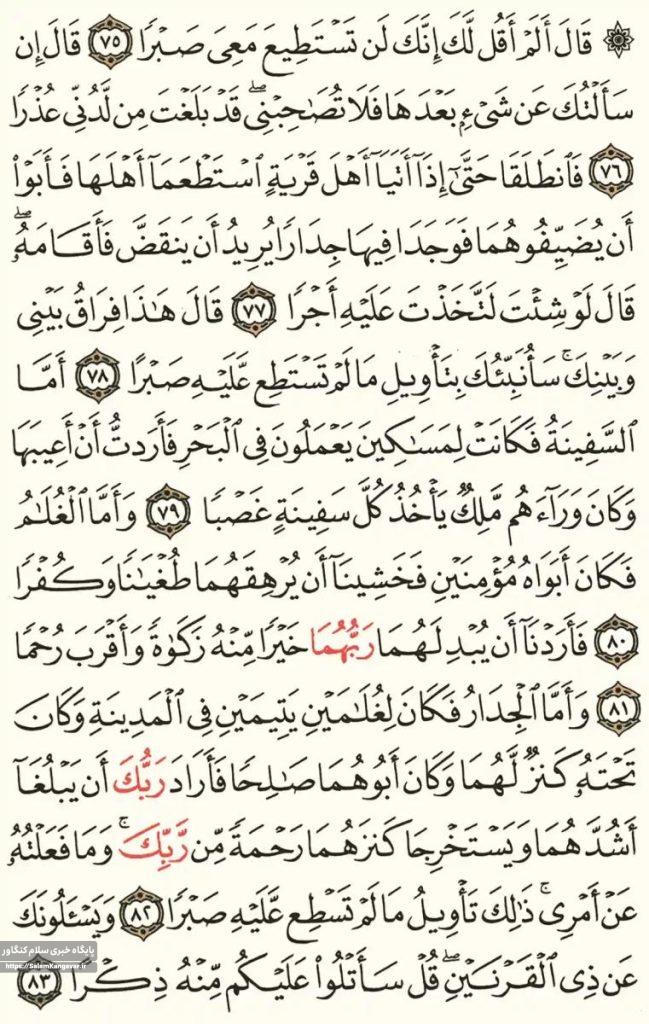 ۞ قَالَ أَلَمْ أَقُل لَّكَ إِنَّكَ لَن تَسْتَطِيعَ مَعِىَ صَبْرًا ٧٥ قَالَ إِن
سَأَلْتُكَ عَن شَىْءٍۭ بَعْدَهَا فَلَا تُصَـٰحِبْنِىۖ قَدْ بَلَغْتَ مِن لَّدُنِّى عُذْرًا
٧٦ فَٱنطَلَقَا حَتَّىٰٓ إِذَآ أَتَيَآ أَهْلَ قَرْيَةٍ ٱسْتَطْعَمَآ أَهْلَهَا فَأَبَوْا۟
أَن يُضَيِّفُوهُمَا فَوَجَدَا فِيهَا جِدَارًا يُرِيدُ أَن يَنقَضَّ فَأَقَامَهُۥۖ
قَالَ لَوْ شِئْتَ لَتَّخَذْتَ عَلَيْهِ أَجْرًا ٧٧ قَالَ هَـٰذَا فِرَاقُ بَيْنِى
وَبَيْنِكَۚ سَأُنَبِّئُكَ بِتَأْوِيلِ مَا لَمْ تَسْتَطِع عَّلَيْهِ صَبْرًا ٧٨ أَمَّا
ٱلسَّفِينَةُ فَكَانَتْ لِمَسَـٰكِينَ يَعْمَلُونَ فِى ٱلْبَحْرِ فَأَرَدتُّ أَنْ أَعِيبَهَا
وَكَانَ وَرَآءَهُم مَّلِكٌ يَأْخُذُ كُلَّ سَفِينَةٍ غَصْبًا ٧٩ وَأَمَّا ٱلْغُلَـٰمُ
فَكَانَ أَبَوَاهُ مُؤْمِنَيْنِ فَخَشِينَآ أَن يُرْهِقَهُمَا طُغْيَـٰنًا وَكُفْرًا
٨٠ فَأَرَدْنَآ أَن يُبْدِلَهُمَا رَبُّهُمَا خَيْرًا مِّنْهُ زَكَوٰةً وَأَقْرَبَ رُحْمًا
٨١ وَأَمَّا ٱلْجِدَارُ فَكَانَ لِغُلَـٰمَيْنِ يَتِيمَيْنِ فِى ٱلْمَدِينَةِ وَكَانَ
تَحْتَهُۥ كَنزٌ لَّهُمَا وَكَانَ أَبُوهُمَا صَـٰلِحًا فَأَرَادَ رَبُّكَ أَن يَبْلُغَآ
أَشُدَّهُمَا وَيَسْتَخْرِجَا كَنزَهُمَا رَحْمَةً مِّن رَّبِّكَۚ وَمَا فَعَلْتُهُۥ
عَنْ أَمْرِىۚ ذَٰلِكَ تَأْوِيلُ مَا لَمْ تَسْطِع عَّلَيْهِ صَبْرًا ٨٢ وَيَسْـَٔلُونَكَ
عَن ذِى ٱلْقَرْنَيْنِۖ قُلْ سَأَتْلُوا۟ عَلَيْكُم مِّنْهُ ذِكْرًا ٨٣
پایگاه خبری سلام کنگاور
https://SalamKangavar.ir